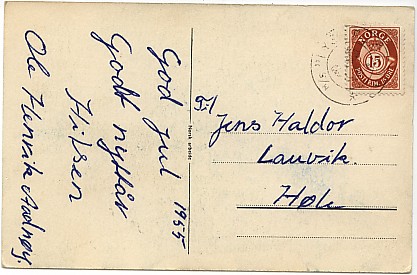 God jul 1955
Godt nyttår
Hilsen
Ole Henrik
Norsk arbeide
NORGE
15
POSTFRIM.
Til
Jens Haldor
Lauvik.